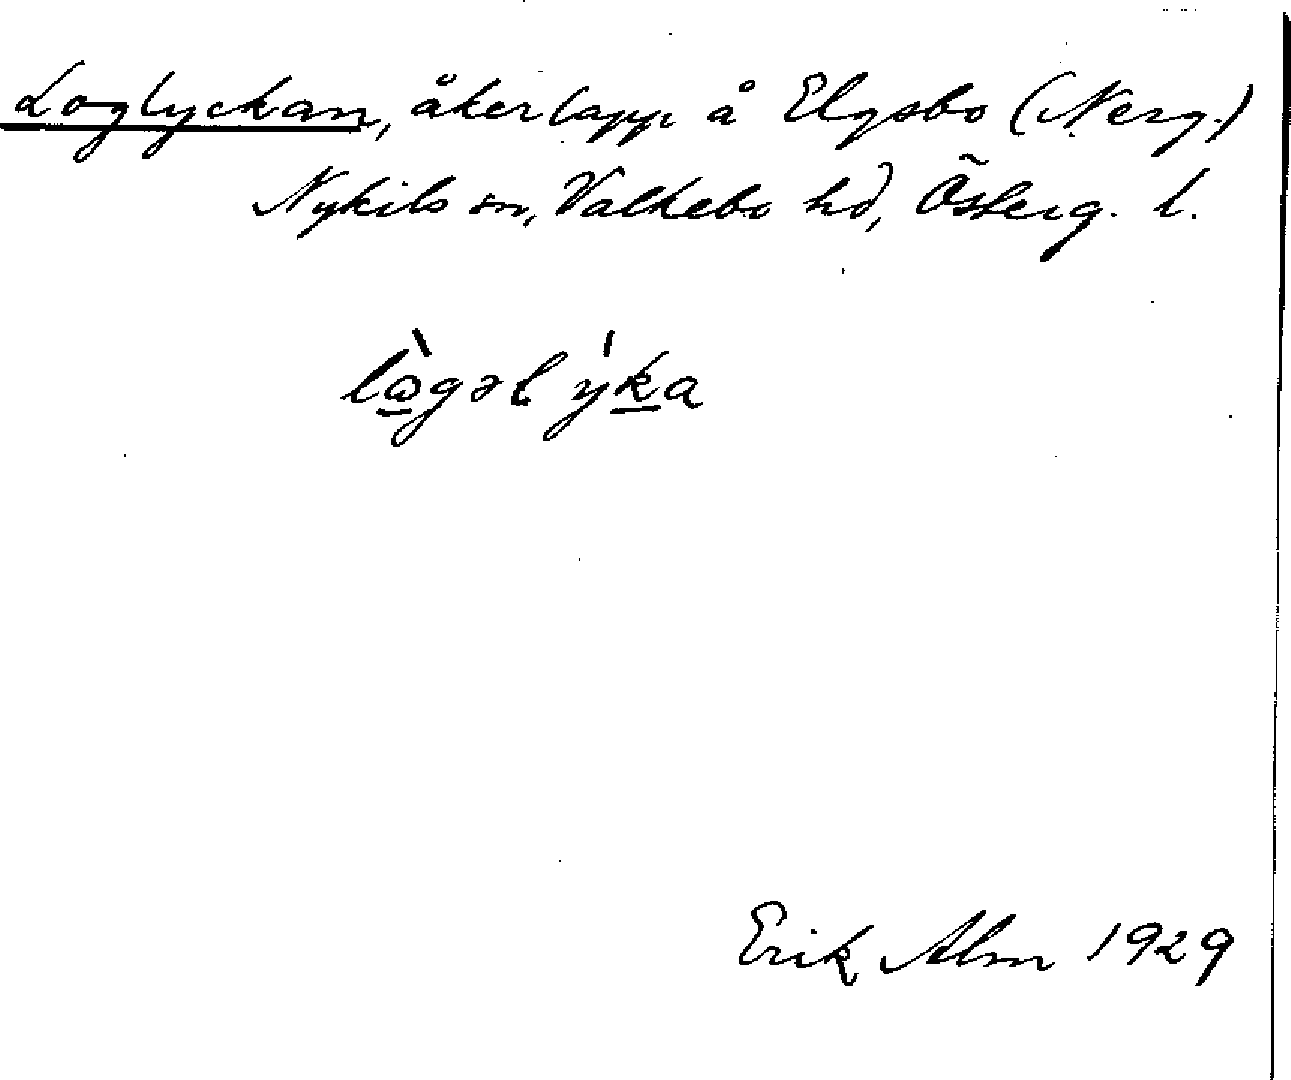 Loglyckan, åkerlapp å Elgsbo (Nerg.)
Nykils sn, Valkebo hd, Österg. l.
lὼgəl y̍ka
Erik Alm 1929